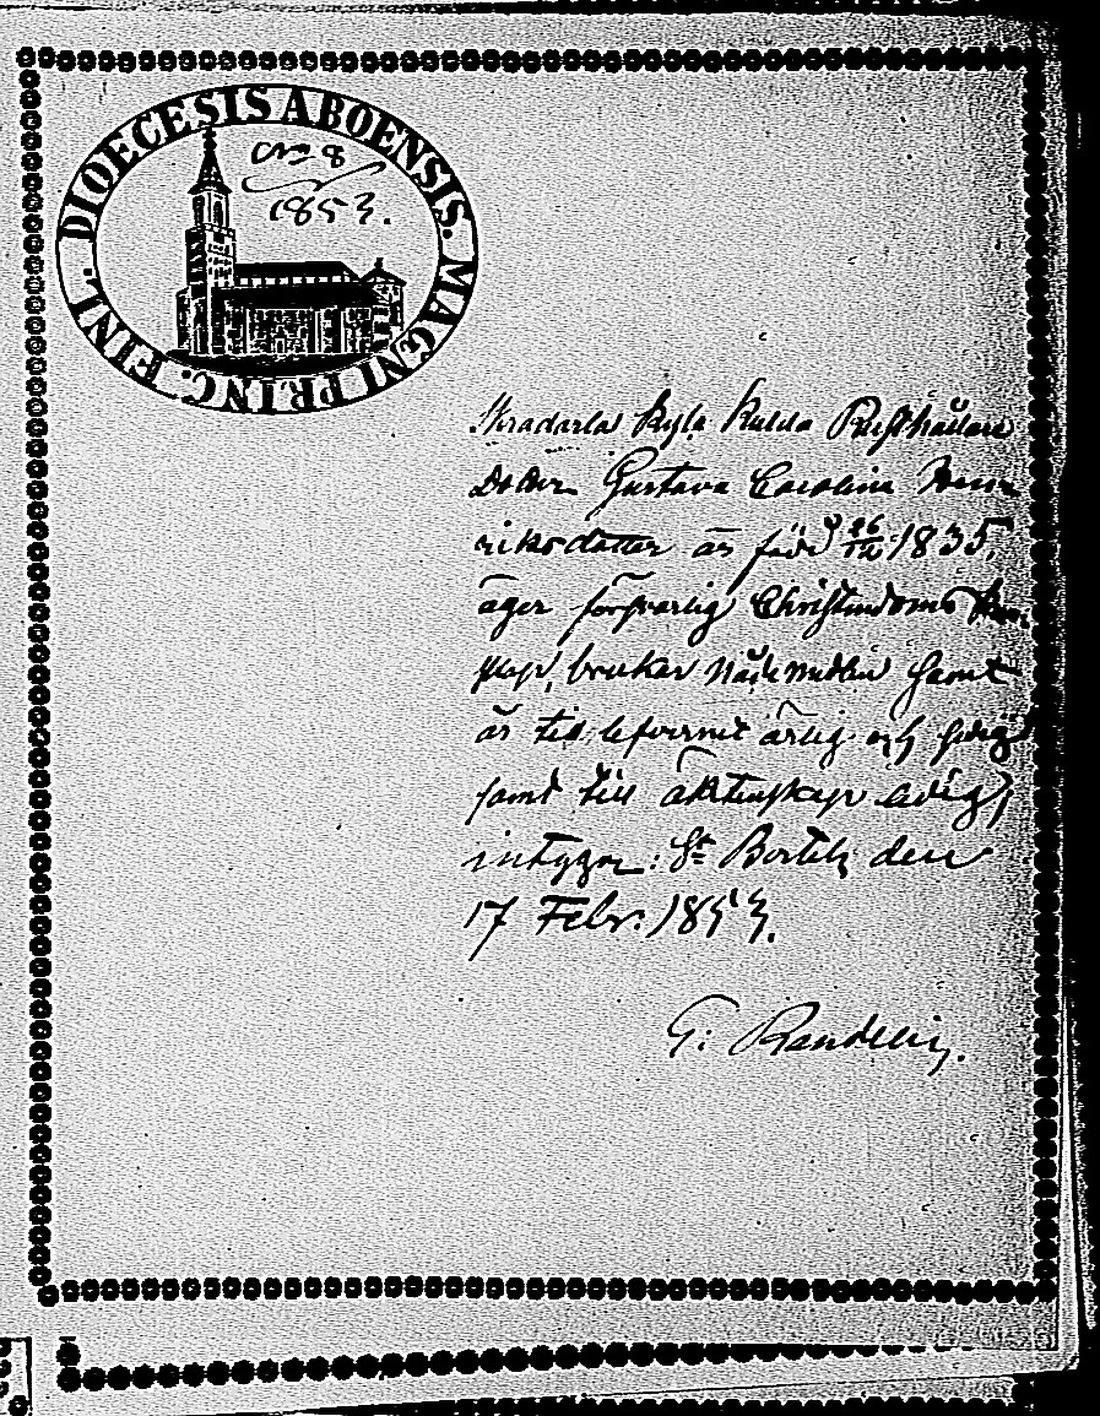 DIOECESIS ABOENSIS. MAGNI PRINC. FINL.
No 8
1853.
Rusthållare
Dotter Gustava Carolina Hen-
riksdotter är född 26/12 1835,
äger försvarlig Christendoms kun-
skap, brukar Nådemedlen samt
är till lefvernet ärlig och
samt till äktenskap ledig,
intygar: St Bertils den
17 Febr. 1853.
G: Randelin.